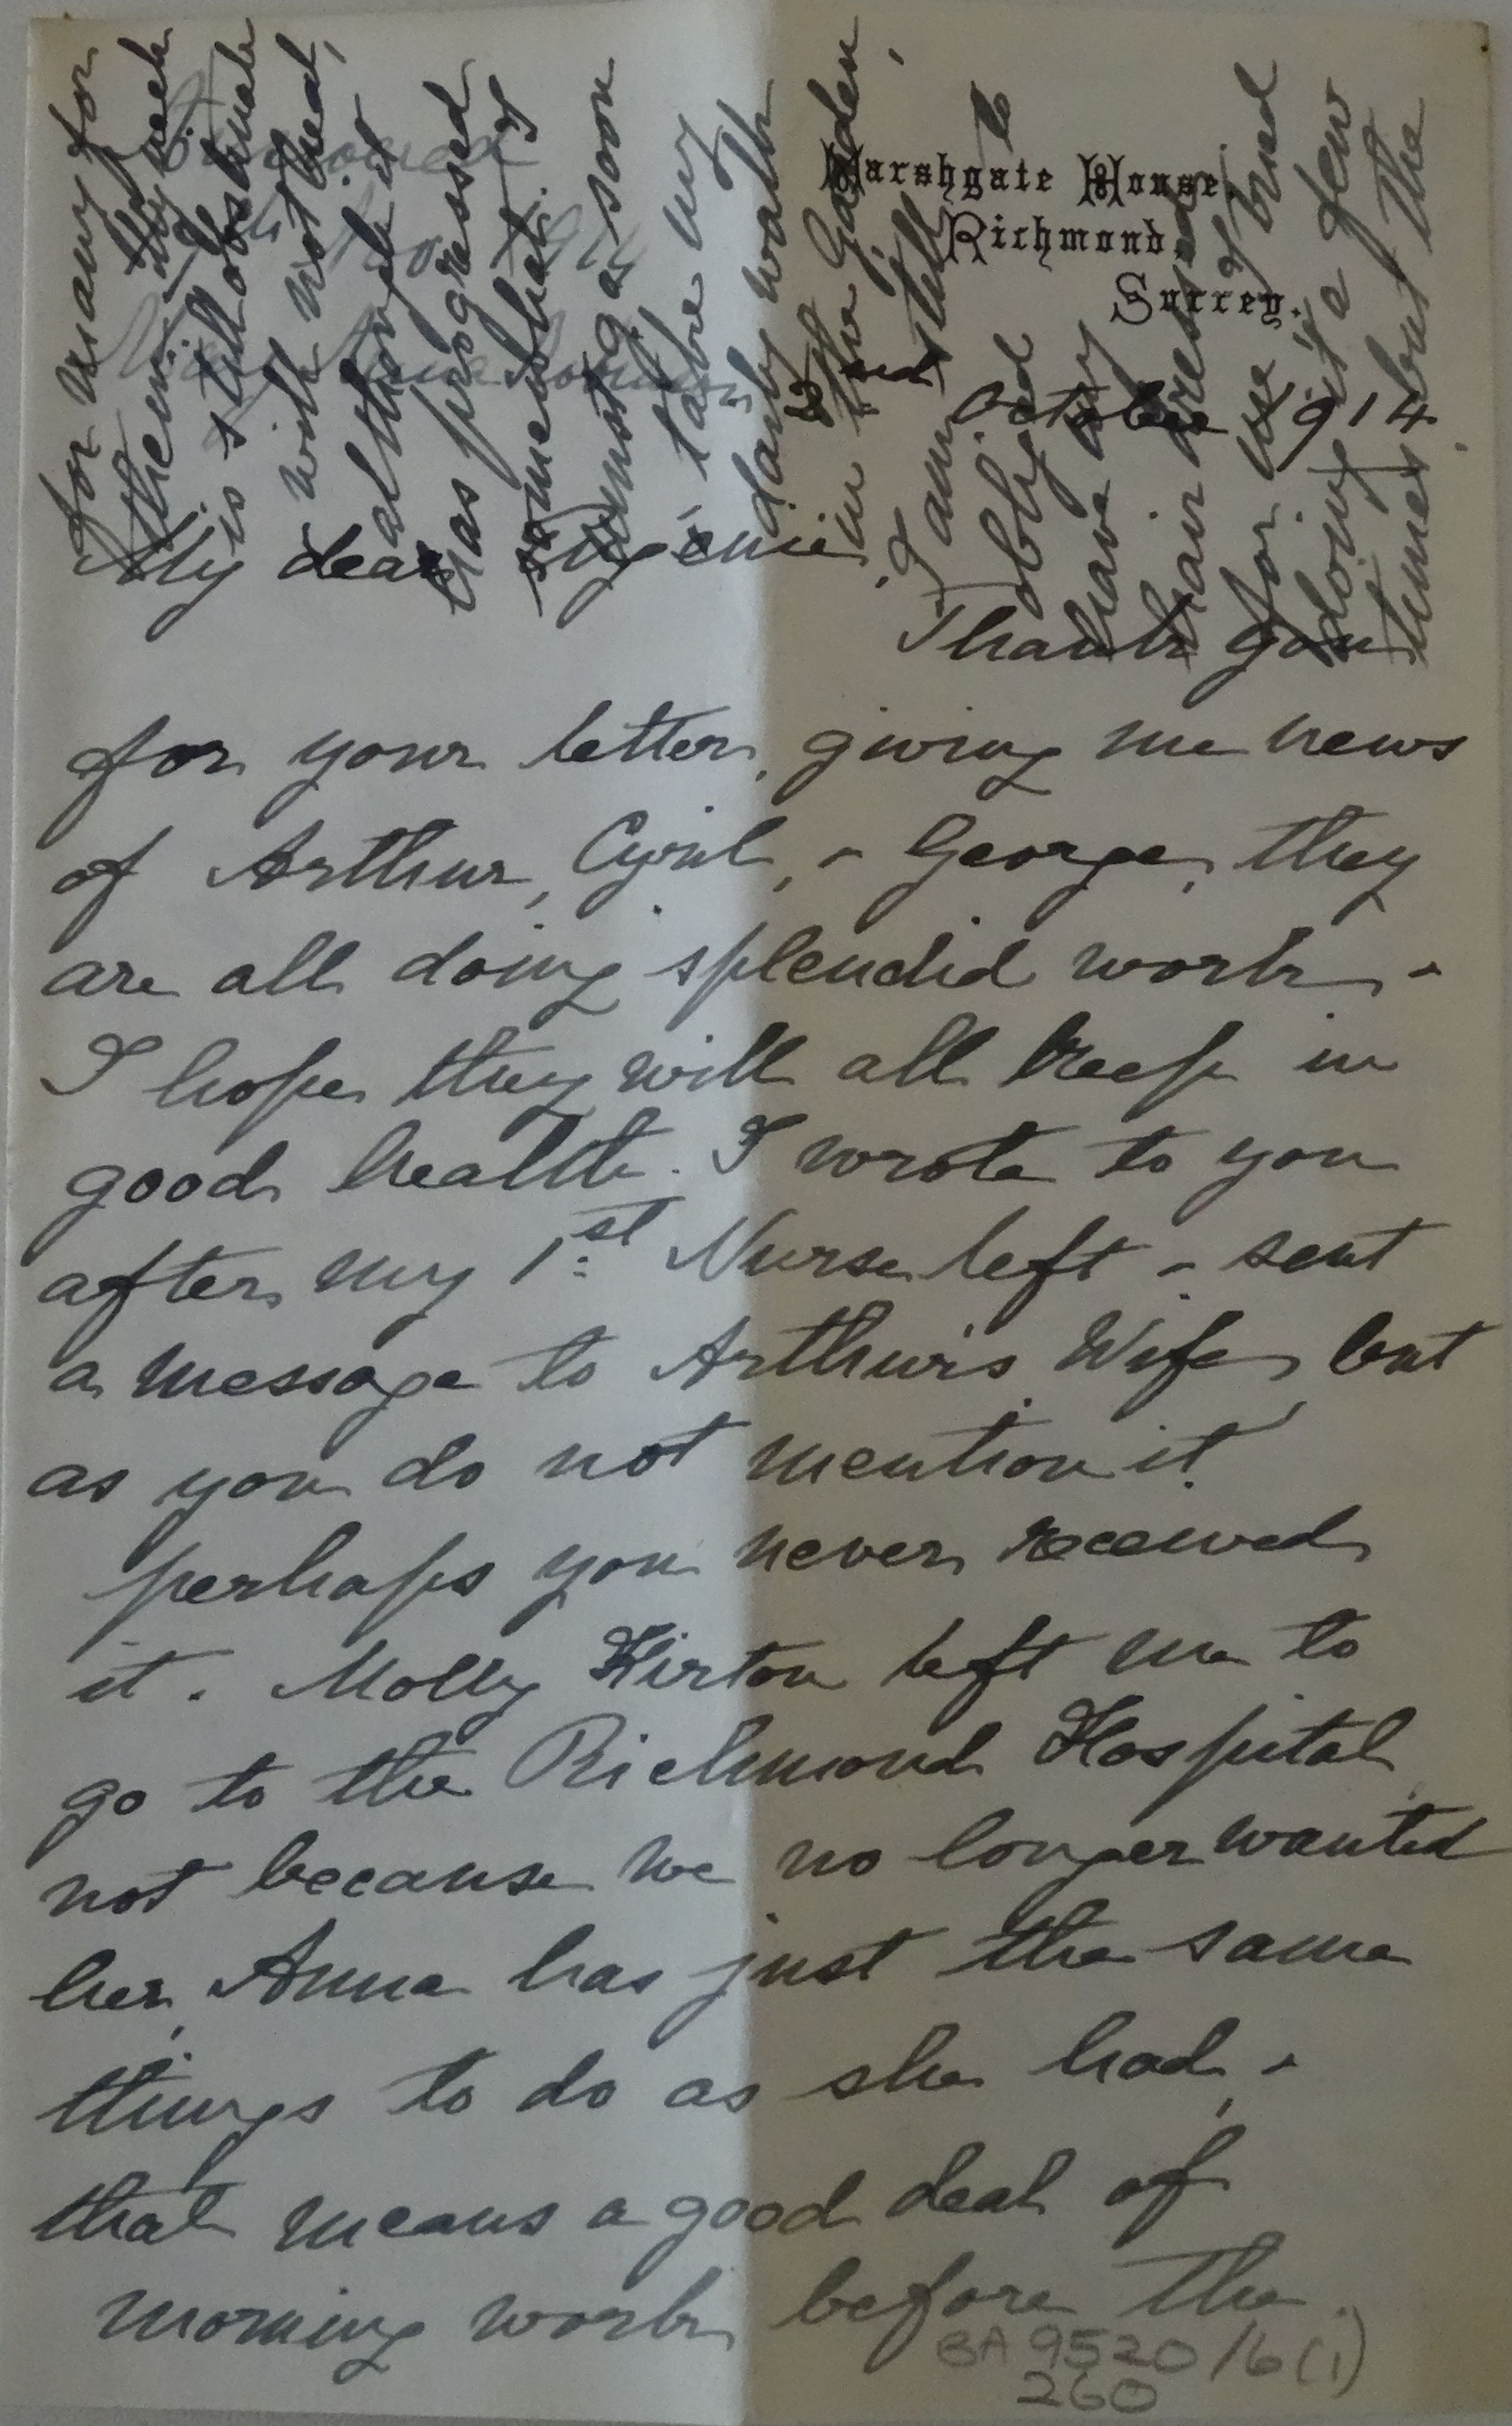 Marshgate House,
Richmond,
Surrey.
October 1914
My dear Eugénie
Thank you
for your letter, giving me news
of Arthur, Cyril, & George, they
are all doing splendid work, &
I hope they will all keep in
good health. I wrote to you
after my 1st Nurse left & sent
a message to Arthur's Wife, but
as you do not mention it
perhaps you never received
it. Molly Kirton left me to
go to the Richmond Hospital,
not because we no longer wanted
her, Anna has just the same
things to do as she had, &
that means a good deal of
morning work before the
BA 9520/6(1)
260
for many for
them. My neck
is still obstinate
& will not heal,
although it
has progressed
somewhat. I
must as soon
take my
daily walk
in the Garden,
& I am still
obliged to
have my
hair dressed
for me & tried
doing it a few
times but the